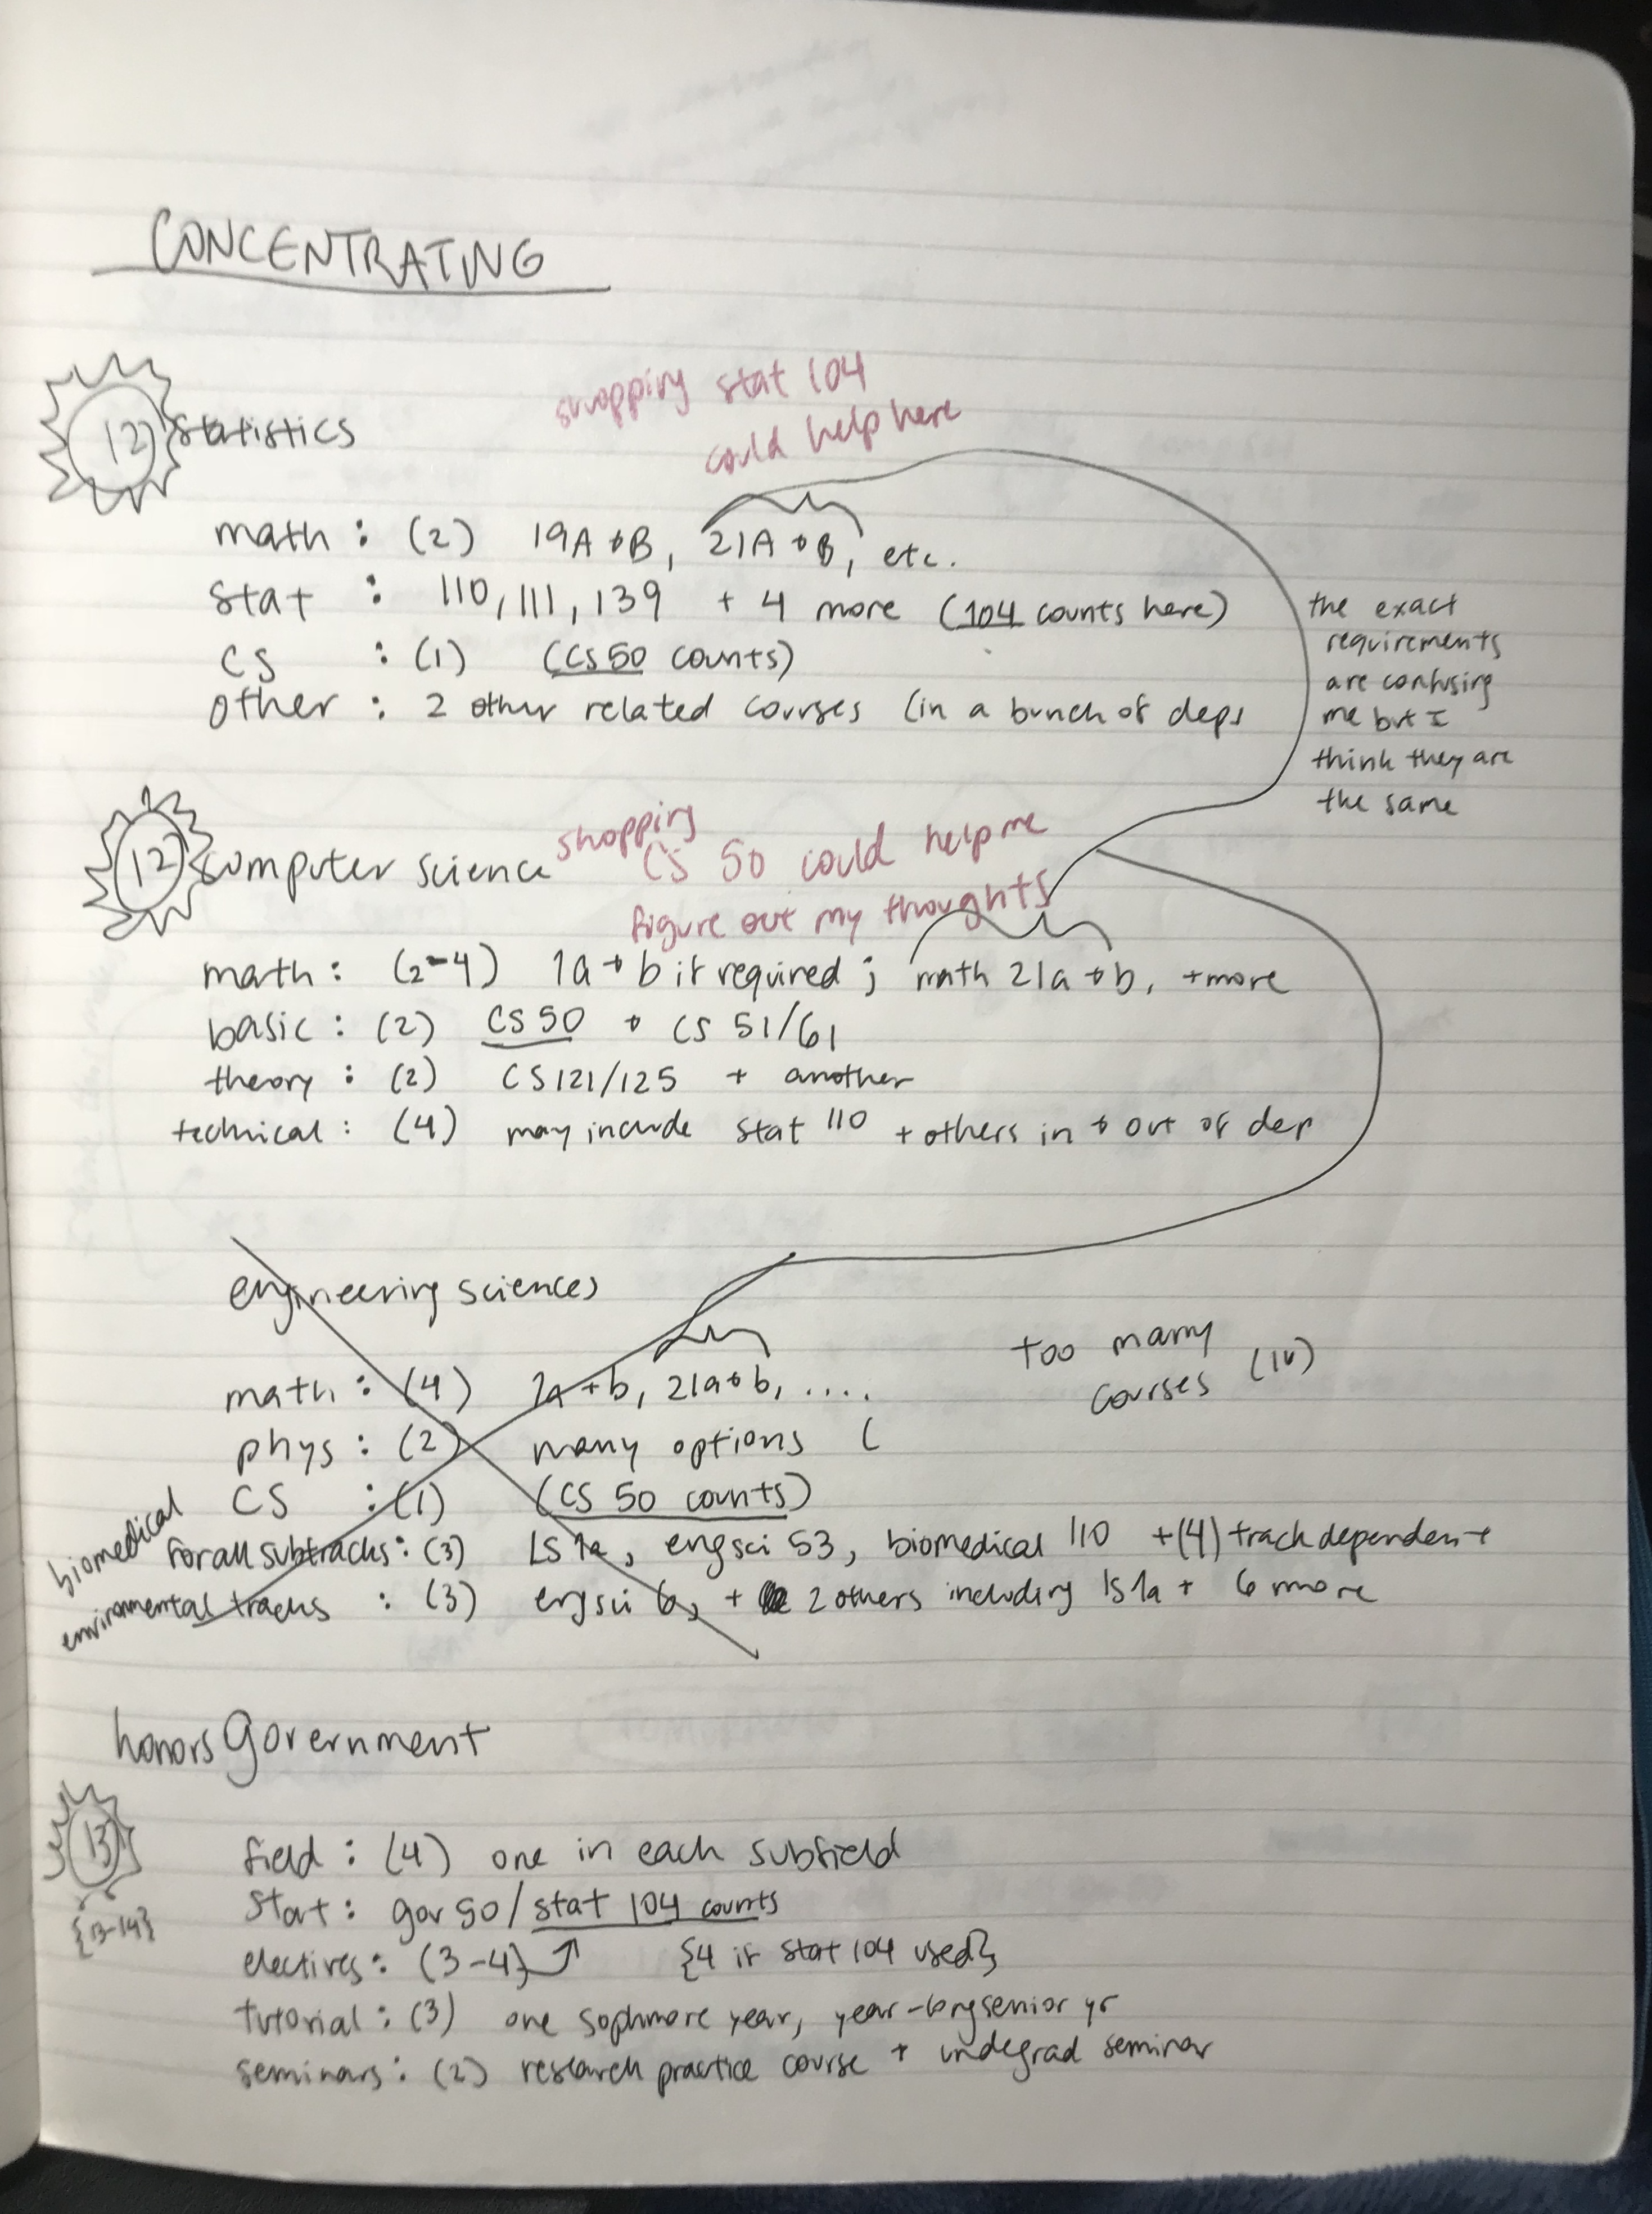 CONCENTRATING
shopping stat 104
could help here
12 statistics
math : (2) 19A + B, 21A + B, etc.
stat : 110, 111, 139 + 4 more (104 counts here)
CS : (1) (CS 50 counts)
other : 2 other related courses (in a bunch of deps
the exact
requirements
are confusing
me but I
think they are
the same
12 computer science
shopping
CS 50 could help me
figure out my thoughts
math : (2-4) 1a + b if required ; math 21a + b, + more
basic : (2) CS 50 + CS 51/61
theory : (2) CS 121/125 + another
technical : (4) may include stat 110 + others in + out of dep
engineering sciences
too many
courses
math : (4) 1a + b, 21a + b, ....
phys : (2) many options (
CS : (1) (CS 50 counts)
biomedical for all subtracks : (3) LS 1a, eng sci 53, biomedical 110 + (4) track dependent
environmental tracks : (3) eng sci 6, + 2 others including ls 1a + 6 more
honors Government
13
{13-14}
field : (4) one in each subfield
stat : gov 50 / stat 104 counts
electives : (3-4) {4 if stat 104 used}
tutorial : (3) one sophmore year, year-long senior yr
seminars : (2) research practice course + undegrad seminar